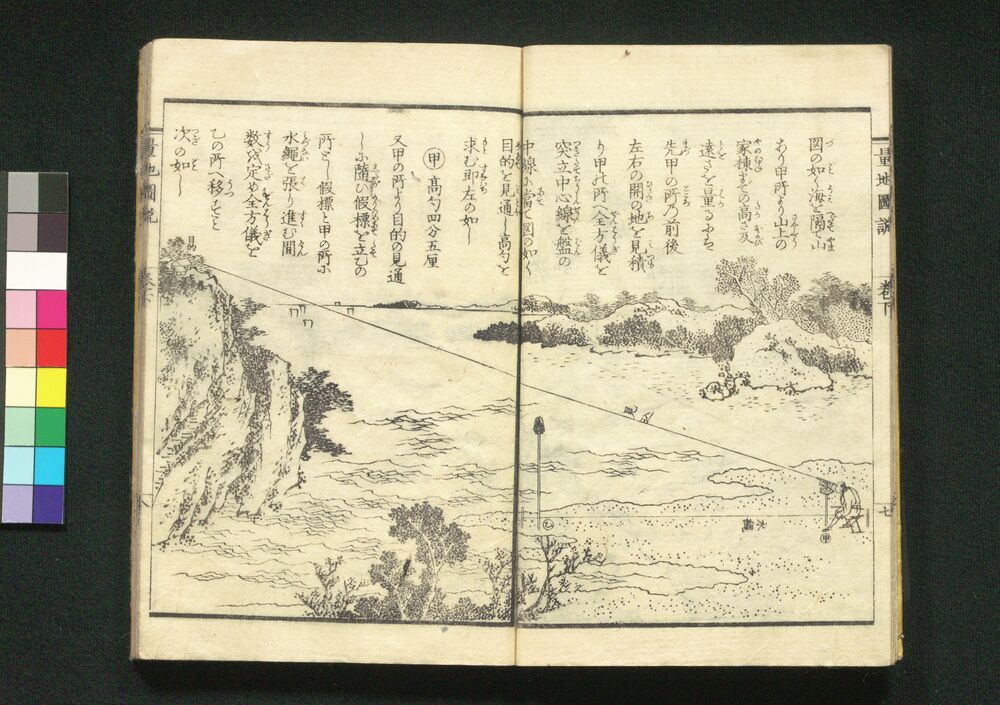 量地圖説
卷下
七
図の如く海を隔て山
あり甲所より山上の
家棟までの高さ及
遠さを量るにハ
先甲の所乃前後
左右の開の地を見積
り甲の所へ全方儀を
突立中心線を盤の
中線に當て図の如く
目的を見通し高勺を
求む即左の如し
甲 高勺四分五厘
又甲の所より目的の見通
しに随ひ假標を立乙の
所とし假標と甲の所に
水縄を張り進む間
数を定め全方儀を
乙の所へ移すこと
次の如し
目的
乙
水縄
甲
量地圖説
卷下
八